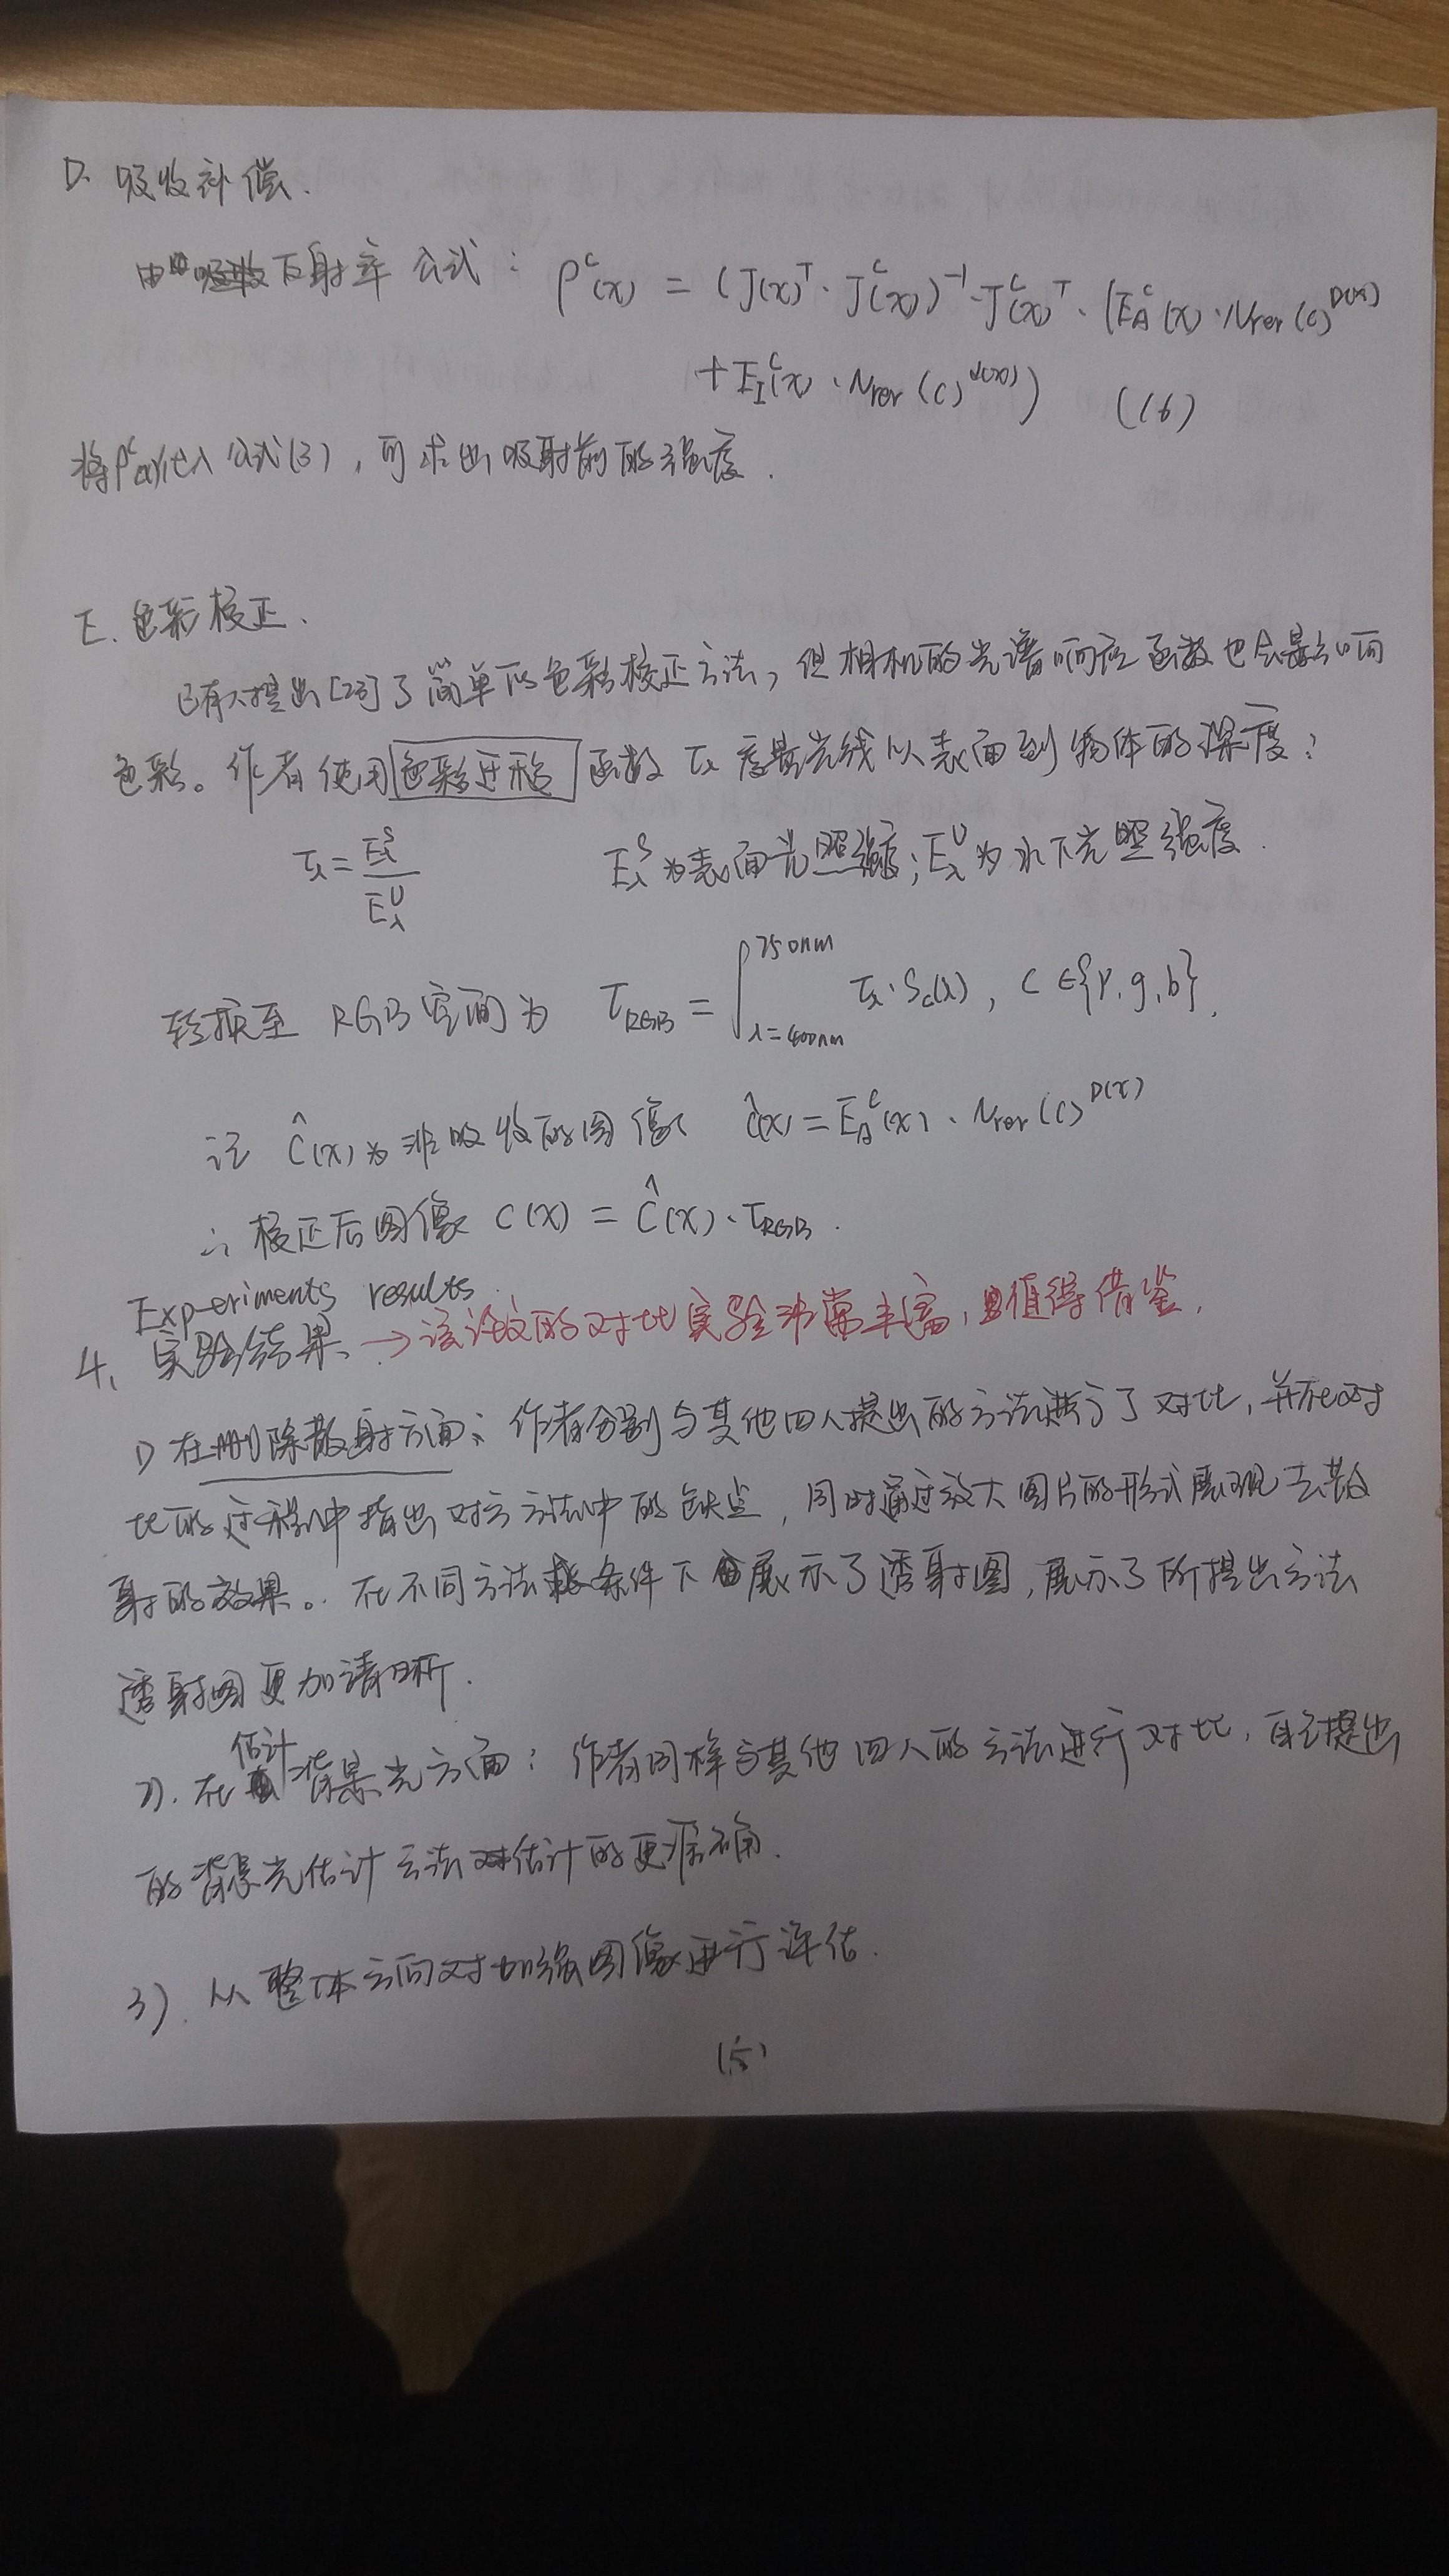 D. 吸收补偿.
由反射率公式: ρ^c(x) = (J(x)^T · J^c(x))^-1 · J^c(x)^T · (E_A^c(x) · Nrer(c)^D(x)
+ E_I^c(x) · Nrer(c)^d(x)) (16)
将ρ^c(x)代入公式(3), 可求出吸射前的强度.
E. 色彩校正.
已有人提出[23]了简单的色彩校正方法, 但相机的光谱响应函数也会影响
色彩。作者使用色彩迁移函数 τλ 度量光线从表面到物体的深度:
τλ = E_λ^S / E_λ^U E_λ^S为表面光照强度; E_λ^U为水下光照强度.
转换至 RGB空间为 τ_RGB = ∫_λ=400nm^750nm τλ·S_c(λ), C ∈{r,g,b}.
记 Ĉ(x)为非吸收的图像 Ĉ(x) = E_A^c(x) · Nrer(c)^D(x)
∴ 校正后图像 C(x) = Ĉ(x)·τ_RGB.
Experiments results
4. 实验结果. → 该论文的对比实验非常丰富, 值得借鉴.
1) 在删除散射方面: 作者分别与其他四人提出的方法进行了对比, 并在对
比的过程中指出对方方法中的缺点, 同时通过放大图片的形式展现去散
射的效果。在不同方法条件下展示了透射图, 展示了所提出方法
透射图更加清晰.
2). 在估计背景光方面: 作者同样与其他四人的方法进行对比, 自己提出
的背景光估计方法估计的更准确.
3). 从整体方面对加强图像进行评估.
(5)